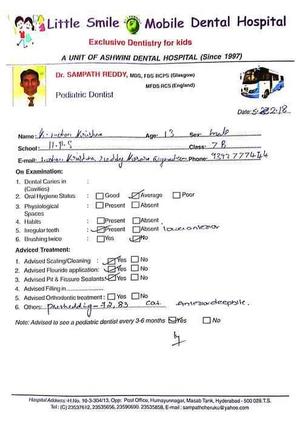 Little Smile Mobile Dental Hospital
Exclusive Dentistry for kids
A UNIT OF ASHWINI DENTAL HOSPITAL (Since 1997)
Dr. SAMPATH REDDY, MDS, FDS RCPS (Glasgow)
MFDS RCS (England)
Pediatric Dentist
Date:
Name: Krishna Age: 13 Sex: male
School: H.P.S Class: 7 B
E-mail: Phone:
On Examination:
1. Dental Caries in (Cavities)
2. Oral Hygiene Status Good Average Poor
3. Physiological Spaces Present Absent
4. Habits Present Absent
5. Irregular teeth Present Absent
6. Brushing twice Yes No
Adviced Treatment:
1. Advised Scaling/Cleaning : Yes No
2. Advised Flouride application: Yes No
3. Advised Pit & Fissure Sealants Yes No
4. Advised Filling in
5. Advised Orthodontic treatment : Yes No
6. Others:
Note: Advised to see a pediatric dentist every 3-6 months Yes No
Hospital Address: H.No. 10-3-304/13, Opp: Post Office, Humayunnagar, Masab Tank, Hyderabad - 500 028 T.S.
Tel: (C) 23537612, 23535656, 23590600, 23535858, E-mail : sampathcheruku@yahoo.com